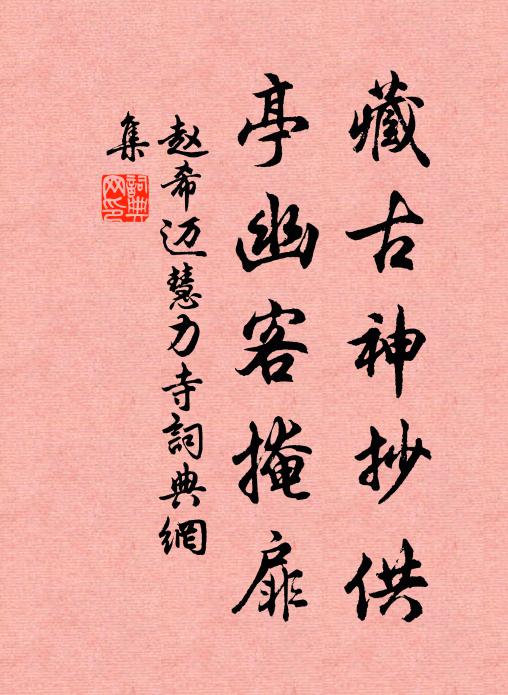 藏古神抄供
亭幽客掩扉
赵希迈慧力寺詞典網
集
詞典网印